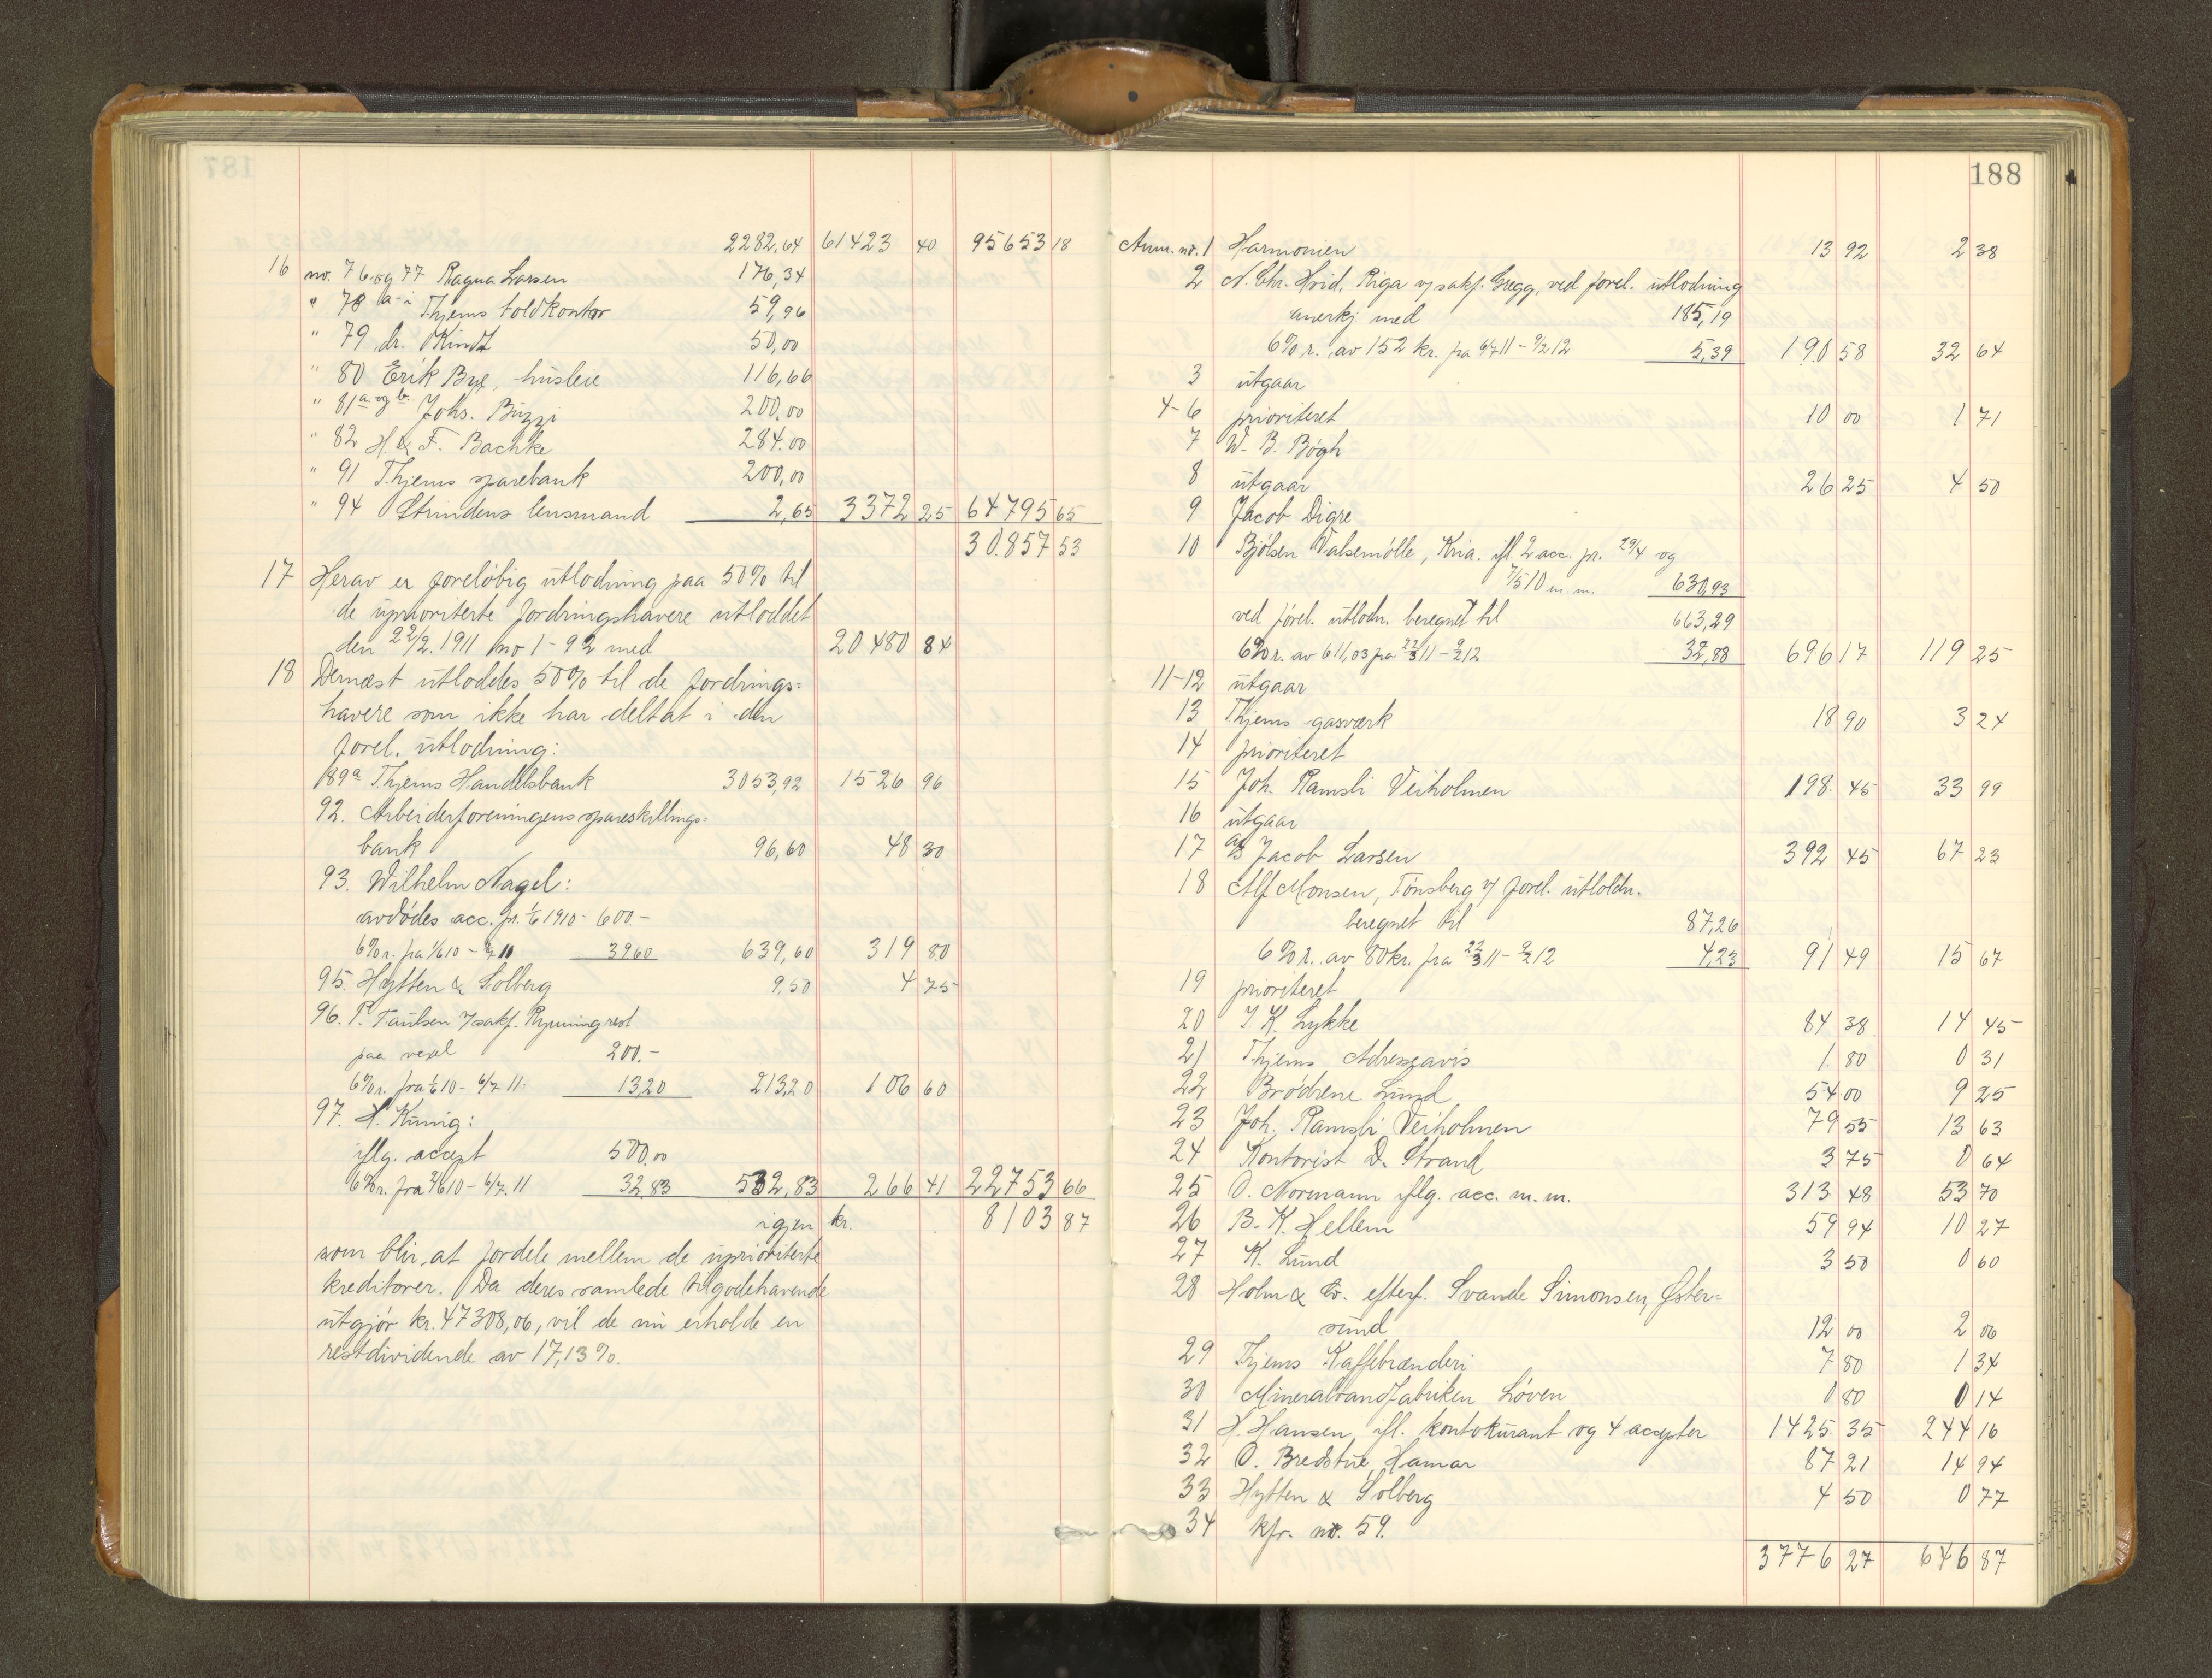 2282,64 61423 40 95653 18
16 no. 76 og 77 Ragna Larsen 176,34
" 78 a-i Thjems toldkontor 59,96
" 79 dr. Kindt 50,00
" 80 Erik Bye, husleie 116,66
" 81 a og b. Johs. Buzzi 200,00
" 82 H. & F. Bachke 284.00
" 91 Thjems sparebank 200,00
" 94 Strindens lensmand 2,65 3372 25 64795 65
30.857 53
17 Herav er foreløbig utlodning paa 50% til
de uprioriterte fordringshavere utloddet
den 22/2. 1911 no 1-92 med 20480 84
18 Dernæst utloddes 50% til de fordrings=
havere som ikke har deltat i den
forel. utlodning:
89a Thjems Handelsbank 3053,92 1526 96
92. Arbeiderforeningens spareskillings=
bank 96,60 48 30
93. Wilhelm Nagel:
avdødes acc. pr. 1/6 1910 - 600.-
6% r. fra 1/6 10 - 39.60 639,60 319 80
95. Hytten & Solberg 9,50 4 75
96. P. Paulsen v/sakf. Ryning rest
paa vexel 200.-
6% r. fra 1/6 10 - 6/7. 11. 13,20 213,20 106 60
97. H. Kunig:
iflg. accept 500,00
6% r. fra 2/6 10 - 6/7. 11 32.83 532,83 266 41 22753 66
igjen kr. 8103 87
som blir at fordele mellem de uprioriterte
kreditorer. Da deres samlede tilgodehavende
utgjør kr. 47308,06, vil de nu erholde en
restdividende av 17,13%.
188
Anm. no. 1 Harmonien 13 92 2 38
2 N. Chr. Hvid, Riga v/ sakf. Gregg, ved forel. utlodning
anerkj med 185,19
6% r. av 152 kr. fra 6/7 11 - 9/2 12 5,39 190 58 32 64
3 utgaar
4-6 prioriteret 10 00 1 71
7 W. B. Bøgh
8 utgaar 26 25 4 50
9 Jacob Digre
10 Bjølsen Valsemølle, Kria. ifl. 2 acc. pr. 29/4 og
7/5 10 m. m. 630,93
ved forel. utlodn. beregnet til 663,29
6% r. av 611,03 fra 22/3 11 - 9/2 12 32,88 696 17 119 25
11-12 utgaar
13 Thjems gasværk 18 90 3 24
14 prioriteret
15 Joh. Ramsli Veiholmen 198. 45 33 99
16 utgaar
17 A/S Jacob Larsen 392 45 67 23
18 Alf Monsen, Tønsberg v/ forel. utlodn.
beregnet til 87,26
6% r. av 80 kr. fra 22/3 11 - 9/2 12 4,23 91 49 15 67
19 prioriteret
20 I. K. Lykke 84 38 14 45
21 Thjems Adresseavis 1 80 0 31
22 Brødrene Lund 54 00 9 25
23 Joh. Ramsli Veiholmen 79 55 13 63
24 Kontorist D. Strand 3 75 0 64
25 O. Normann iflg. acc. m. m. 313 48 53 70
26 B. K. Hellem 59 94 10 27
27 K. Lund 3 50 0 60
28 Holm & Co. efterf. Svande Simonsen, Øster=
sund 12 00 2 06
29 Thjems Kaffebrænderi 7 80 1 34
30 Mineralvandfabriken Løven 0 80 0 14
31 H. Hansen, ifl. kontokurant og 4 accepter 1425 35 244 16
32 O. Bredstue, Hamar 87 21 14 94
33 Hytten & Solberg 4 50 0 77
34 kfr. no. 59.
3776 27 646 87